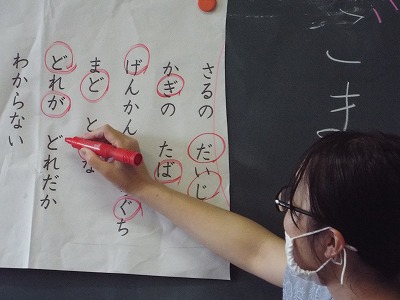 こま
さるの だいじ
かぎの たば
げんかん ぐち
まど と な
どれが どれだか
わからない